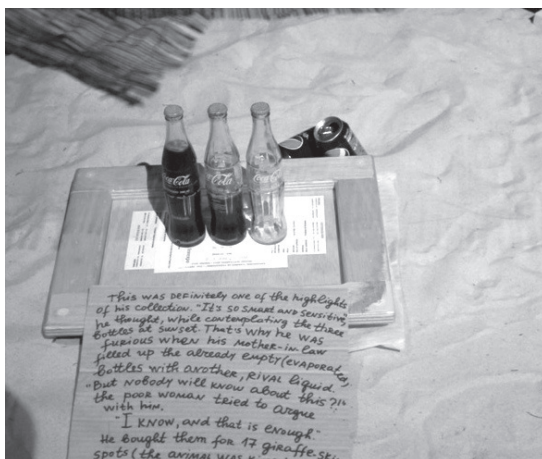 Coca-Cola
Coca-Cola
Coca-Cola
This was definitely one of the highlights
of his collection. "It's so smart and sensitive,"
he thought, while contemplating the three
bottles at sunset. That's why he was
furious when his mother-in-law
filled up the already empty (evaporated)
bottles with another, rival liquid.
"But nobody will know about this?!"
the poor woman tried to argue
with him.
"I know, and that is enough."
He bought them for 17 giraffe-ski
spots (the animal was